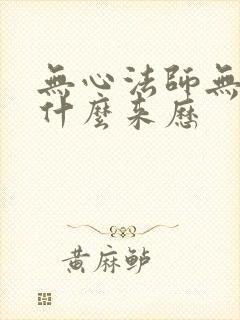 無心法師無
什麼來歷
黄麻鲈